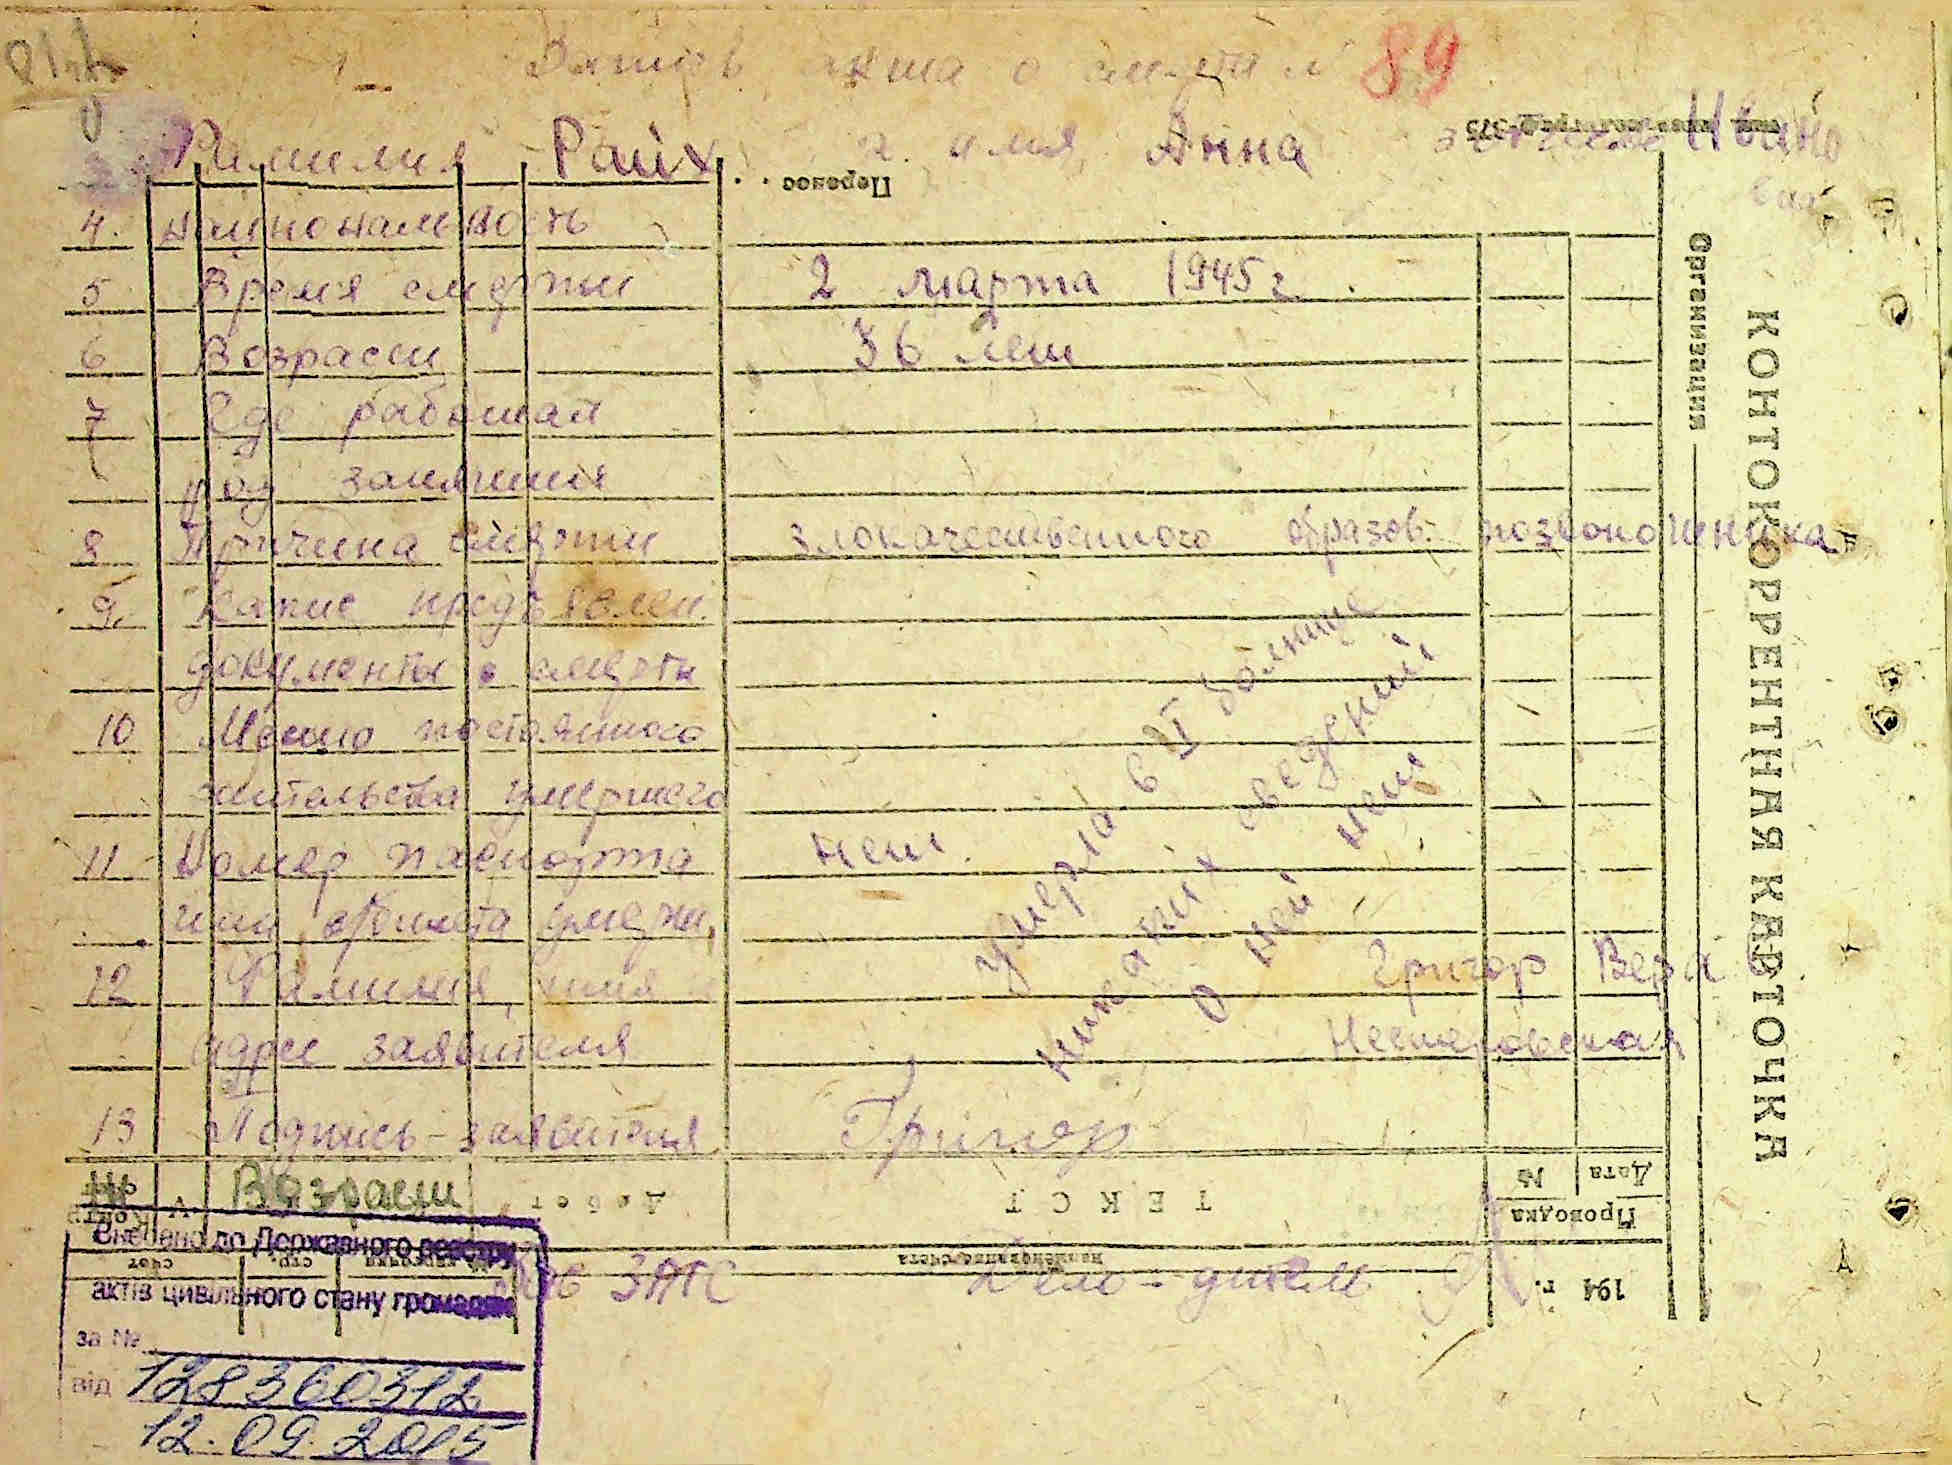 1 Запись акта о смерти № 89
Фамилия Райх имя Анна Ивано
вна
4. Национальность
5 Время смерти 2 марта 1945 г.
6 Возраст 36 лет
7 Где работал
род занятия
8 Причина смерти злокачественного образов. позвоночника
9. Какие предъявлен.
документы о смерти
10 Место постоянного
жительства умершего
11. Номер паспорта нет.
умерш.
12 Фамилия, имя и Григор Вера
адрес заявителя Нестеровская
13 Подпись заявителя Григор
умерла в II болнице
никаких сведений
о ней нет
Возраст
ЗАГС Дело-
Внесено до Державного реєстру
актів цивільного стану громадян
за №
від 128360312
12.09.2015
КОНТОКОРРЕНТНАЯ КАРТОЧКА
Организация
Перенос . .
Дата № ТЕКСТ Дебет
Проводка
наименование счета
194 г.